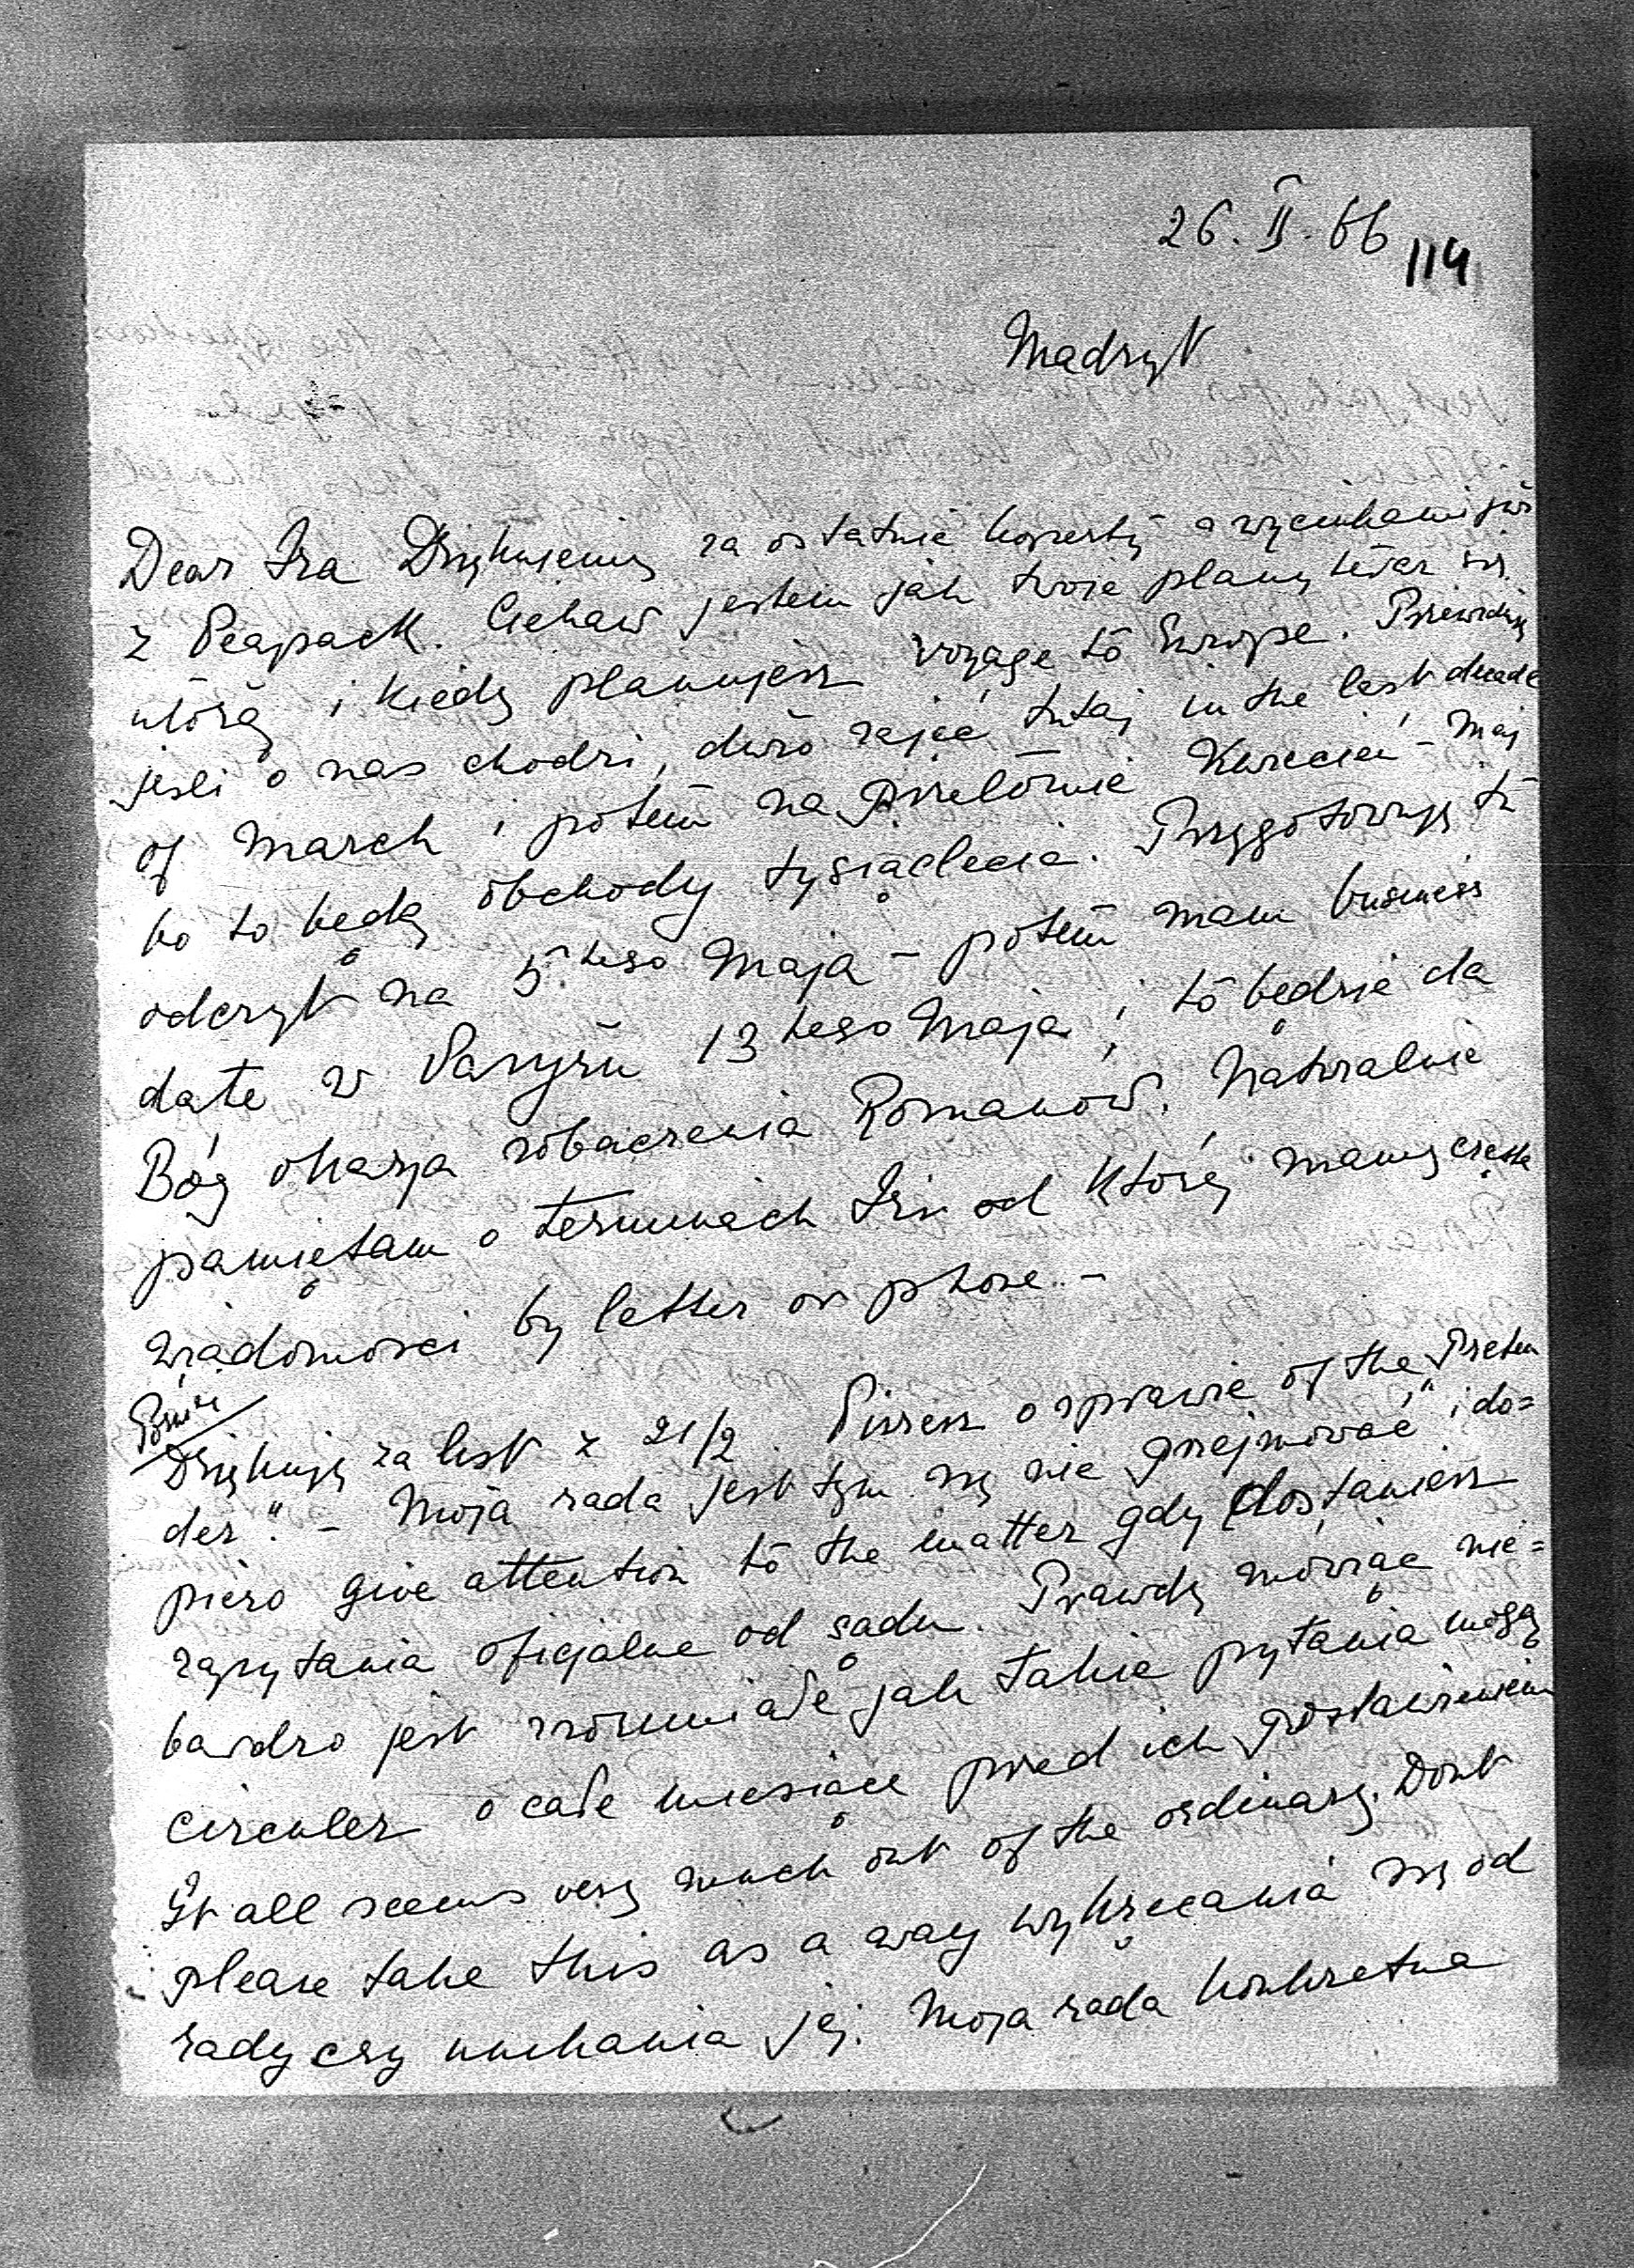 26. II. 66
114
Madryt
Dear Ira Dziękujemy za ostatnie koperty z wycinkami już
z Peapack. Ciekaw jestem jak twoje plany teraz się
ułożą i kiedy planujesz voyage to Europe. Przewiduję
jeśli o nas chodzi, dużo zajęć tutaj in the last decade
of March i potem na przełomie Kwiecień - Maj
bo to będą obchody tysiąclecia. Przygotowuję tu
odczyt na 5tego Maja - potem mam business
date w Paryżu 13tego Maja i to będzie da
Bóg okazja zobaczenia Romanów. Naturalnie
pamiętam o terminach Irin od której mamy częste
wiadomości by letter or phone. -
Dziękuję za list z 21/2. Piszesz o sprawie of the "Preten
der". - Moja rada jest tym się nie przejmować i do=
piero give attention to the matter gdy dostaniesz
zapytania oficjalne od sądu. Prawdę mówiąc nie=
bardzo jest zrozumiałe jak takie pytania mogą
circuler o całe miesiące przed ich postawieniem
It all seems very much out of the ordinary. Dont
please take this as a way wykręcania się od
rady czy unikania jej. Moja rada konkretna